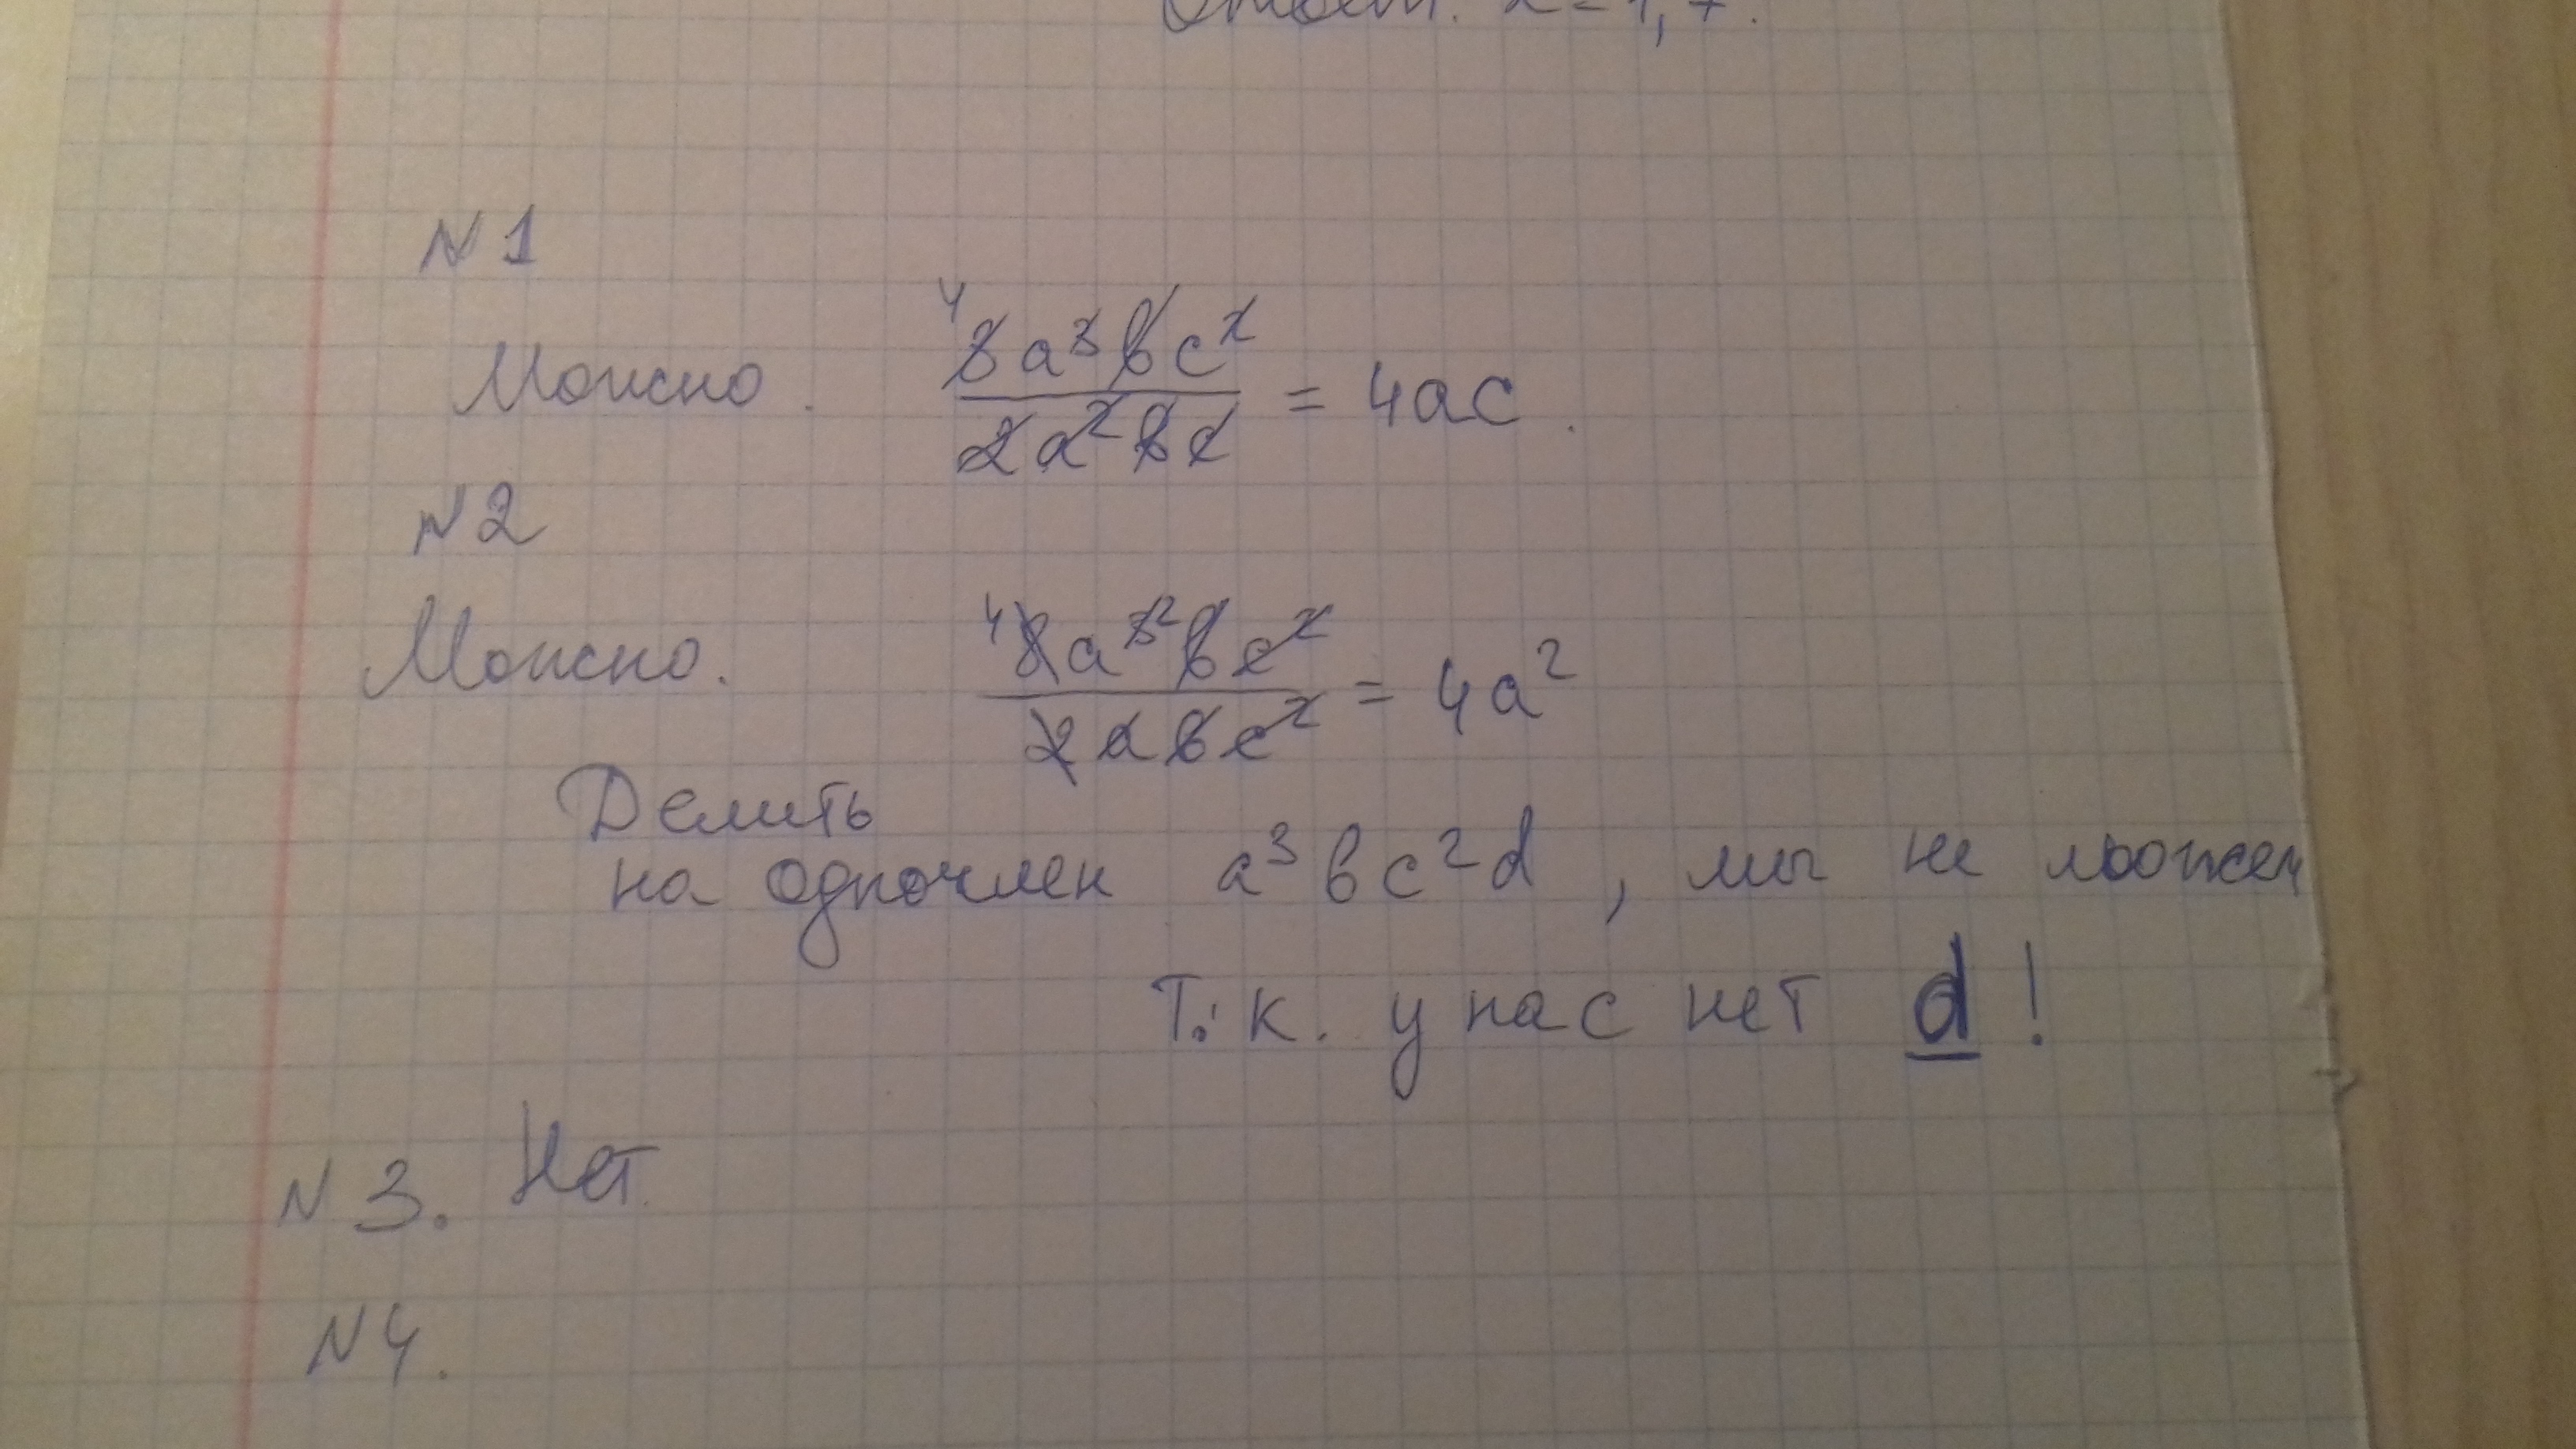 Ответ. x = 1,7.
N 1
Можно. ⁴8a³bc² / 2a²bc = 4ac.
N 2
Можно. ⁴8a³²bc² / 2abc² = 4a²
Делить
на одночлен a³bc²d, мы не можем
Т.к. у нас нет d!
N 3. Нет
N 4.